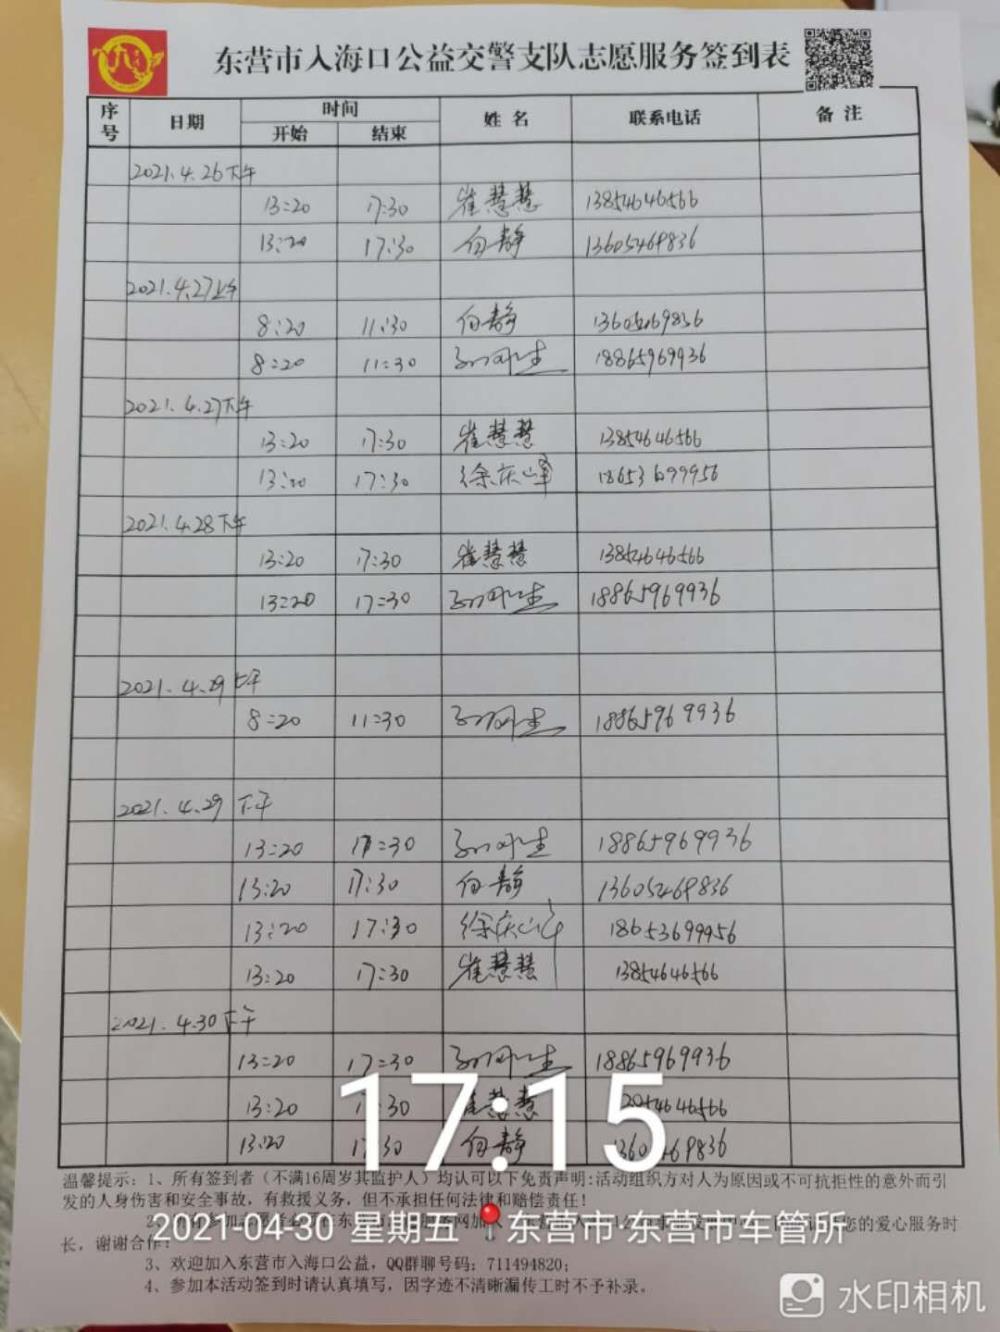 东营市入海口公益交警支队志愿服务签到表
序号 日期 时间 姓 名 联系电话 备 注
开始 结束
2021.4.26下午
13:20 17:30 崔慧慧 13854646566
13:20 17:30 白静 13605469836
2021.4.27上午
8:20 11:30 白静 13605469836
8:20 11:30 18865969936
2021.4.27下午
13:20 17:30 崔慧慧 13854646566
13:20 17:30 徐庆峰 18653699956
2021.4.28下午
13:20 17:30 崔慧慧 13854646566
13:20 17:30 18865969936
2021.4.29上午
8:20 11:30 18865969936
2021.4.29 下午
13:20 17:30 18865969936
13:20 17:30 白静 13605469836
13:20 17:30 徐庆峰 18653699956
13:20 17:30 崔慧慧 13854646566
2021.4.30下午
13:20 17:30 18865969936
13:20 17:30 崔慧慧
13:20 17:30 白静
17:15
温馨提示：1、所有签到者（不满16周岁其监护人）均认可以下免责声明:活动组织方对人为原因或不可抗拒性的意外而引
发的人身伤害和安全事故，有救援义务，但不承担任何法律和赔偿责任！
2021-04-30 星期五 东营市·东营市车管所
您的爱心服务时
长，谢谢合作！
3、欢迎加入东营市入海口公益，QQ群聊号码：711494820；
4、参加本活动签到时请认真填写，因字迹不清晰漏传工时不予补录。
水印相机